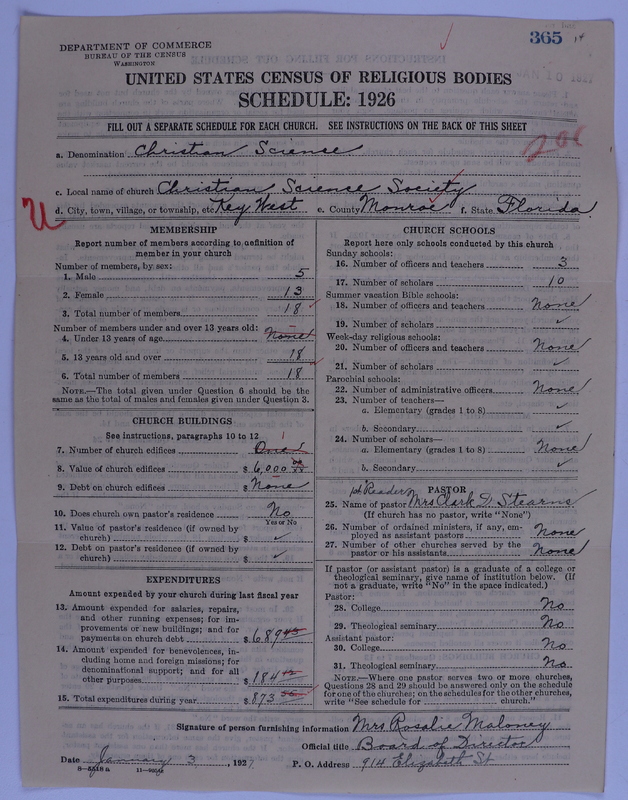 365 14
DEPARTMENT OF COMMERCE
BUREAU OF THE CENSUS
WASHINGTON
UNITED STATES CENSUS OF RELIGIOUS BODIES
SCHEDULE: 1926
FILL OUT A SEPARATE SCHEDULE FOR EACH CHURCH. SEE INSTRUCTIONS ON THE BACK OF THIS SHEET
a. Denomination Christian Science
c. Local name of church Christian Science Society
d. City, town, village, or township, etc Key West e. County Monroe f. State Florida
MEMBERSHIP
Report number of members according to definition of
member in your church
Number of members, by sex:
1. Male 5
2. Female 13
3. Total number of members 18
Number of members under and over 13 years old:
4. Under 13 years of age None
5. 13 years old and over 18
6. Total number of members 18
NOTE.—The total given under Question 6 should be the
same as the total of males and females given under Question 3.
CHURCH BUILDINGS
See instructions, paragraphs 10 to 12
7. Number of church edifices One 1
8. Value of church edifices $ 6,000
9. Debt on church edifices $ None
10. Does church own pastor's residence No
Yes or No
11. Value of pastor's residence (if owned by
church) $ ✓
12. Debt on pastor's residence (if owned by
church) $ ✓
EXPENDITURES
Amount expended by your church during last fiscal year
13. Amount expended for salaries, repairs,
and other running expenses; for im-
provements or new buildings; and for
payments on church debt $ 689
14. Amount expended for benevolences, in-
cluding home and foreign missions; for
denominational support; and for all
other purposes $ 184
15. Total expenditures during year $ 873
CHURCH SCHOOLS
Report here only schools conducted by this church
Sunday schools:
16. Number of officers and teachers 3
17. Number of scholars 10
Summer vacation Bible schools:
18. Number of officers and teachers None
19. Number of scholars ✓
Week-day religious schools:
20. Number of officers and teachers None
21. Number of scholars ✓
Parochial schools:
22. Number of administrative officers None
23. Number of teachers—
a. Elementary (grades 1 to 8) ✓
b. Secondary ✓
24. Number of scholars—
a. Elementary (grades 1 to 8) None
b. Secondary ✓
1st Reader PASTOR
25. Name of pastor Mrs Clark D. Stearns
(If church has no pastor, write "None")
26. Number of ordained ministers, if any, em-
ployed as assistant pastors None
27. Number of other churches served by the
pastor or his assistants None
If pastor (or assistant pastor) is a graduate of a college or
theological seminary, give name of institution below. (If
not a graduate, write "No" in the space indicated.)
Pastor:
28. College No
29. Theological seminary No
Assistant pastor:
30. College No
31. Theological seminary No
NOTE.—Where one pastor serves two or more churches,
Questions 28 and 29 should be answered only on the schedule
for one of the churches; on the schedules for the other churches,
write "See schedule for church."
Signature of person furnishing information Mrs Rosalie Maloney
Official title Board of Director
Date January 3, 1927 P. O. Address 914 Elizabeth St